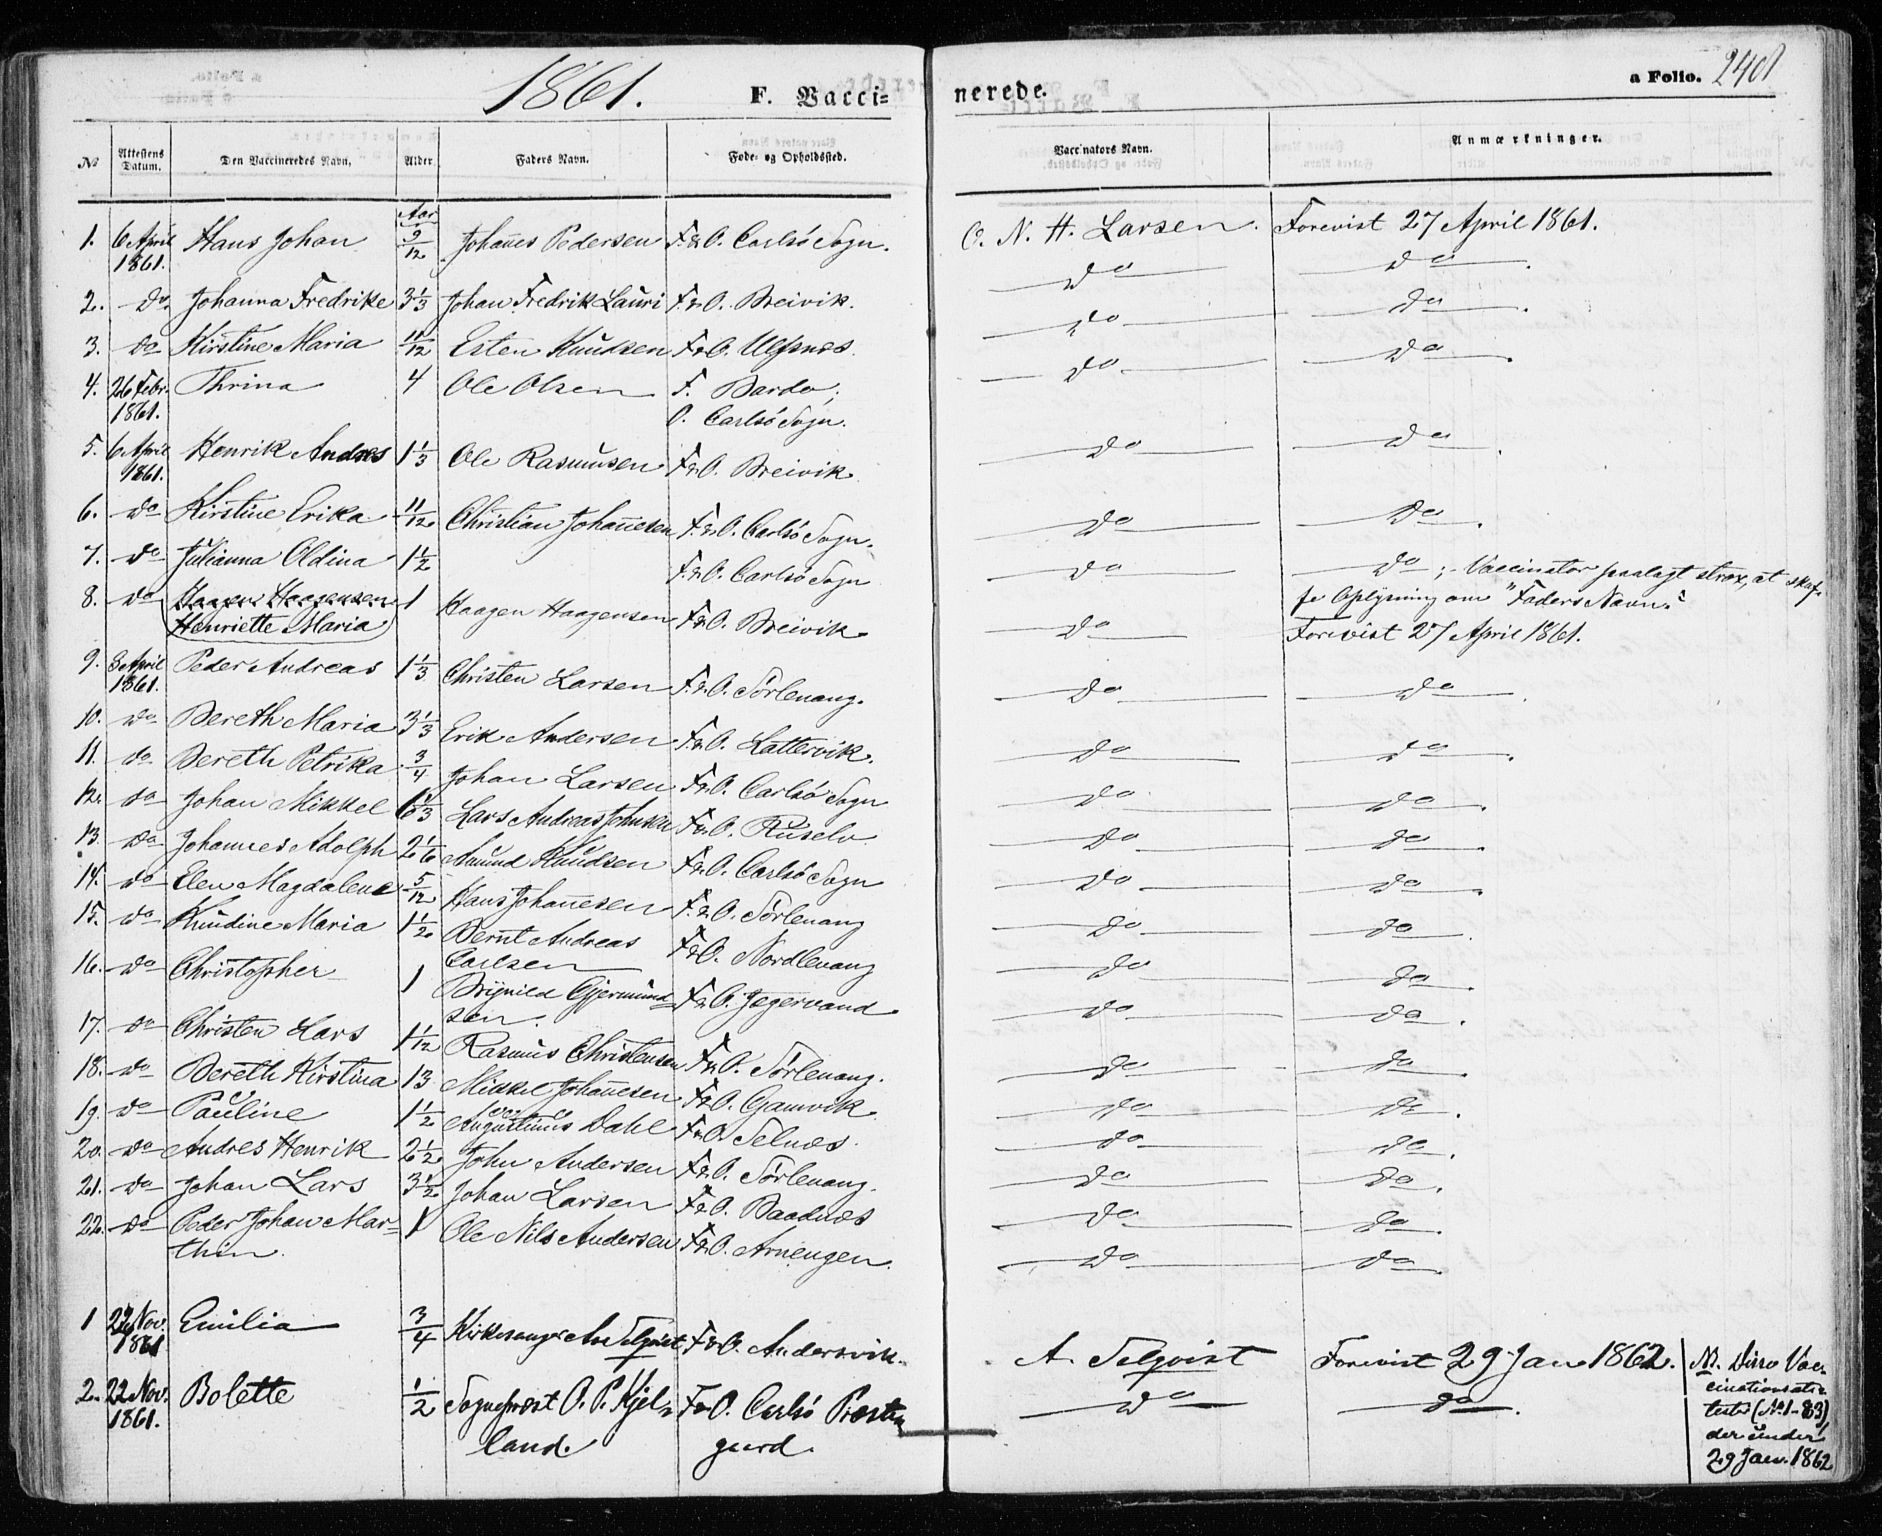 1861. F. Vacci= nerede. a Folio. 240
№ Attestens Datum. Den Vaccineredes Navn. Alder. Faders Navn. Føde- og Opholdssted. Vaccinators Navn. Anmærkninger.
Aar
1. 6 April 1861. Hans Johan 9/12 Johañes Pedersen F. & O. Carlsö Sogn. O. N. H. Larsen. Forevist 27 April 1861.
2. do Johanna Fredrike 3 1/3 Johan Fredrik Lauri F. & O. Breivik. do do
3. do Kirstine Maria 11/12 Esten Knudsen F & O. Ulfsnes. do do
4. 26 Febr. 1861. Thrina 4 Ole Olsen F. Bardo; do do
O. Carlsö Sogn.
5. 6 April 1861. Henrik Andres 1 1/3 Ole Rasmusen F & O. Breivik do do
6. do Kirstine Erika 11/12 Christian Johañesen F. & O. Carlsö Sogn. do do
7. do Julianna Oldina 1 1/2 F. & O. Carlsö Sogn do do; Vaccinator paalagt strax, at skaf-
fe Oplysning om "Faders Navn."
8. do Haagen Haagensen 1 Haagen Haagensen F & O. Breivik do Forevist 27 April 1861.
Henriette Maria
9. 3 April 1861. Peder Andreas 1 1/3 Christen Larsen F. & O. Sörlenang. do do
10. do Bereth Maria 3 1/3 Erik Andersen F & O. Lattervik. do do
11. do Bereth Petrika 3/4 Johan Larsen F & O. Carlsö Sogn do do
12. do Johan Mikkel 6 1/3 Lars Andreas Johnsen F & O. Ruselv do do
13. do Johannes Adolph 2 1/6 Amund Knudsen F & O. Carlsö Sogn do do
14. do Elen Magdalene 5/12 Hans Johañesen F. & O. Sörlenang do do
15. do Knudine Maria 1 1/2 Bernt Andreas F & O. Nordlenang do do
Carlsen
16. do Christopher 1 Brynild Gjermund= F & O. Jegervand do do
sen.
17. do Christen Lars 1 1/12 Rasmus Christensen F & O. Sörlenang. do do
18. do Bereth Kirstina 13 Mikkel Johañesen F & O. Gamvik do do
19. do Pauline 1 1/2 Augustinus Dahl F & O. Selnæs. do do
20. do Andres Henrik 2 1/2 John Andersen F & O. Sörlenang. do do
21. do Johan Lars 3 1/2 Johan Larsen F & O. Baadnæs do do
22. do Peder Johan Mar- 1 Ole Nils Andersen F & O. Arnengen do do
thin.
1 22 Nov. 1861 Emilia 3/4 Kirkesanger Selqvist F & O. Andersvik. A. Selqvist Forevist 29 Jan 1862.
2. 22 Nov. 1861. Bolette 1/2 Sogneprest O. P. Kjel= F & O. Carlsö Preste= do do.
land. gaard.
NB. Disse Vac-
cinationsatte-
ster (№ 1-83)
der under
29 Jan. 1862